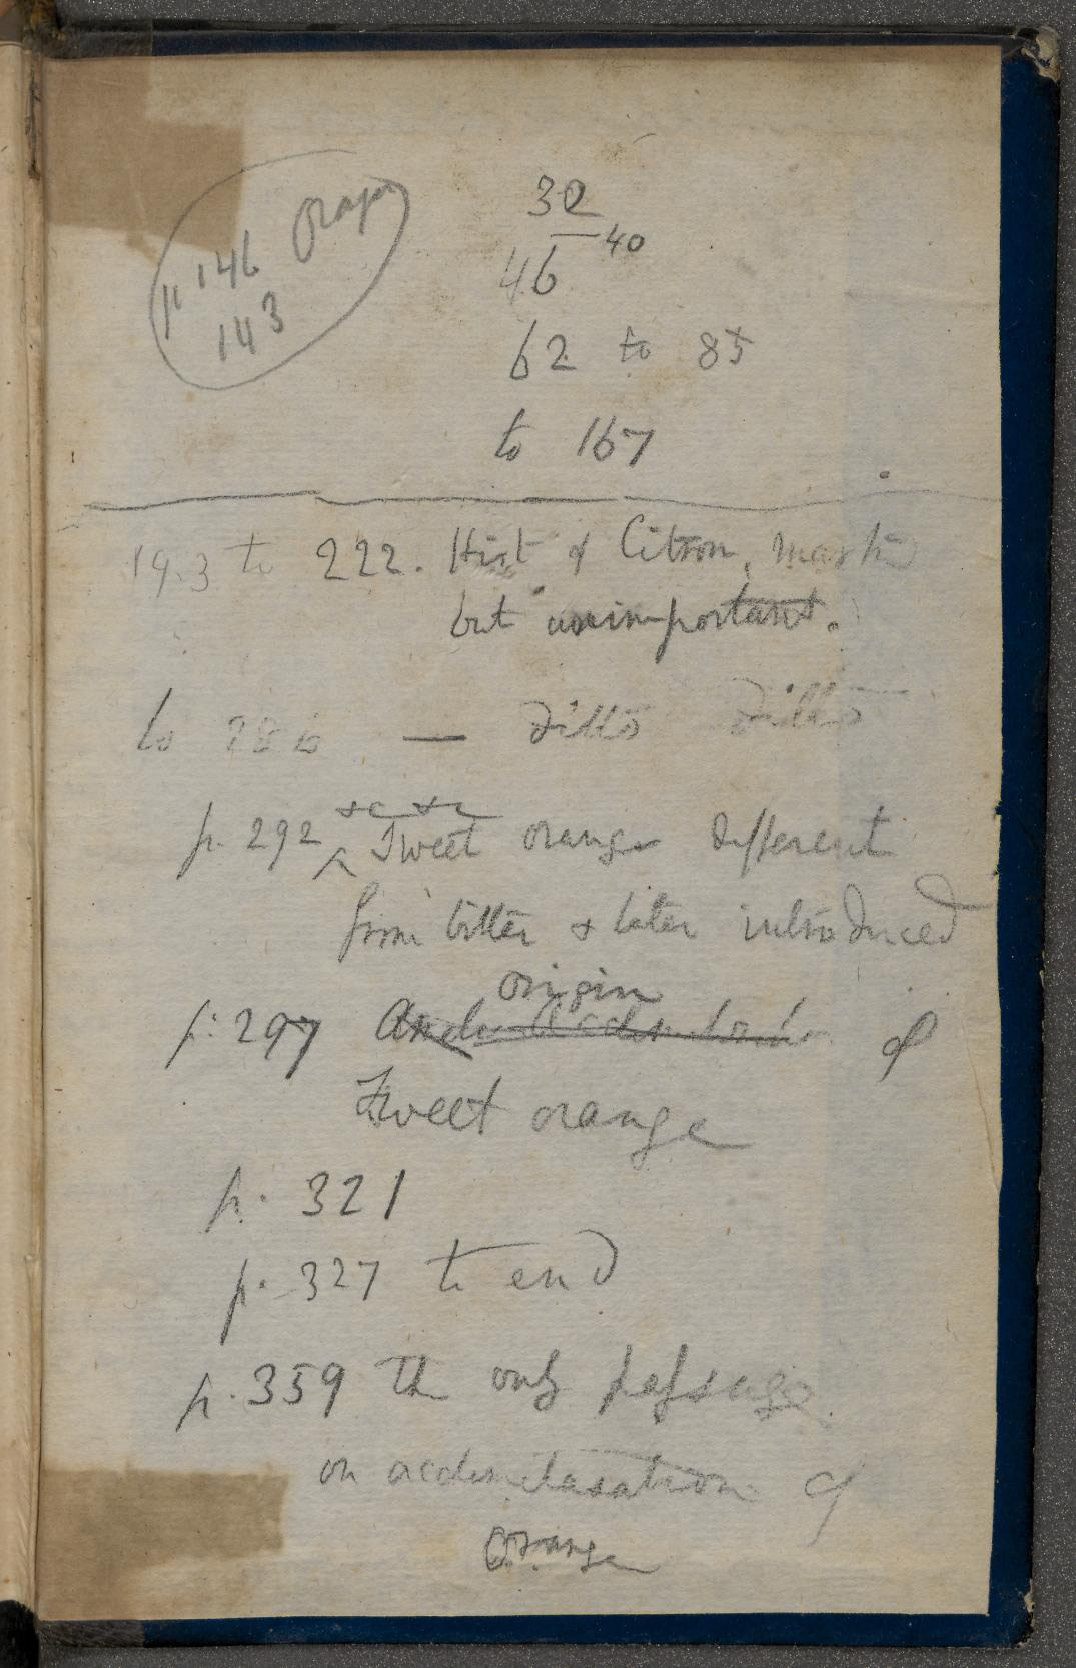 p 146 Orange
143
32
40
46
62 to 85
to 167
193 to 222. Hist of Citron,
but unimportant.
to 286 — ditto ditto
&c &c
p. 292 ^ Sweet orange different
from bitter & later introduced
origin
p. 297 of
Sweet orange
p. 321
p. 327 to end
p. 359 The only passage
on acclimatisation of
Orange